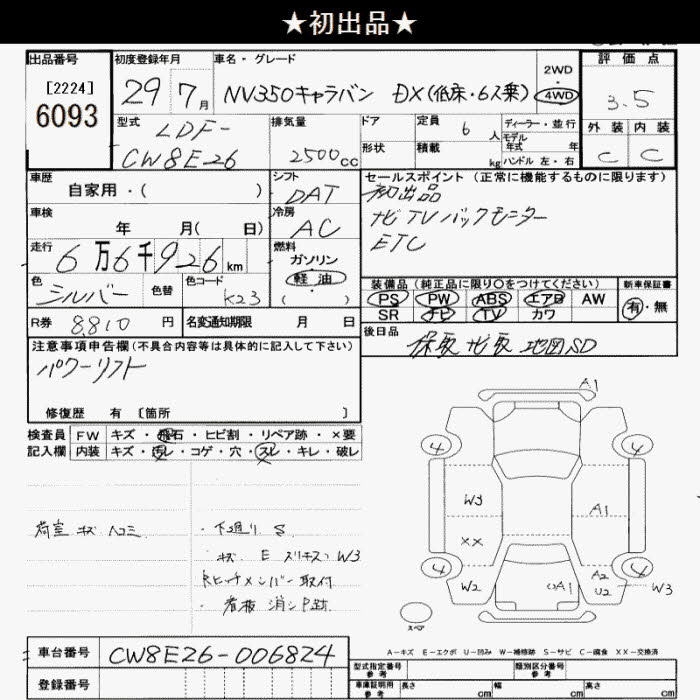 ★初出品★
出品番号
[2224]
6093
初度登録年月
29年 7月
車名・グレード
NV350キャラバン DX(低床・6人乗)
2WD
・
4WD
評価点
3.5
外装 内装
C C
型式
LDF-
CW8E26
排気量
2500cc
ドア
形状
定員 6人
積載 kg
ディーラー・並行
モデル
年式 年
ハンドル 左・右
車歴
自家用・( )
シフト
DAT
セールスポイント (正常に機能するものに限ります)
初出品
ナビTVバックモニター
ETC
車検
年 月( 日)
冷房
AC
走行
6万6千926km
燃料
ガソリン
軽油
( )
色
シルバー
色替
色コード
K23
装備品 (純正品に限り〇をつけてください)
PS PW ABS エアB AW
SR ナビ TV カワ
新車保証書
有・無
R券 8810円
名変通知期限 月 日
後日品
保取 ナビ取 地図SD
注意事項申告欄(不具合内容等は具体的に記入して下さい)
パワーリフト
修復歴 有 〔箇所 〕
検査員
記入欄
FW キズ・飛石・ヒビ割・リペア跡・×要
内装 キズ・汚レ・コゲ・穴・スレ・キレ・破レ
荷室 キズ ヘコミ
・下廻り S
・キズ E スリキズ W3
Rヒッチメンバー取付
・看板消シP跡
A1
4 4
W3
A1
XX
4 4
W2
UA1
A2
U2
W3
スペア
A-キズ E-エクボ U-凹み W-補修跡 S-サビ C-腐食 XX-交換済
車台番号
CW8E26-006824
登録番号
型式指定番号
参考
類別区分番号
参考
車庫証明用
参考
長さ cm
幅 cm
高さ cm